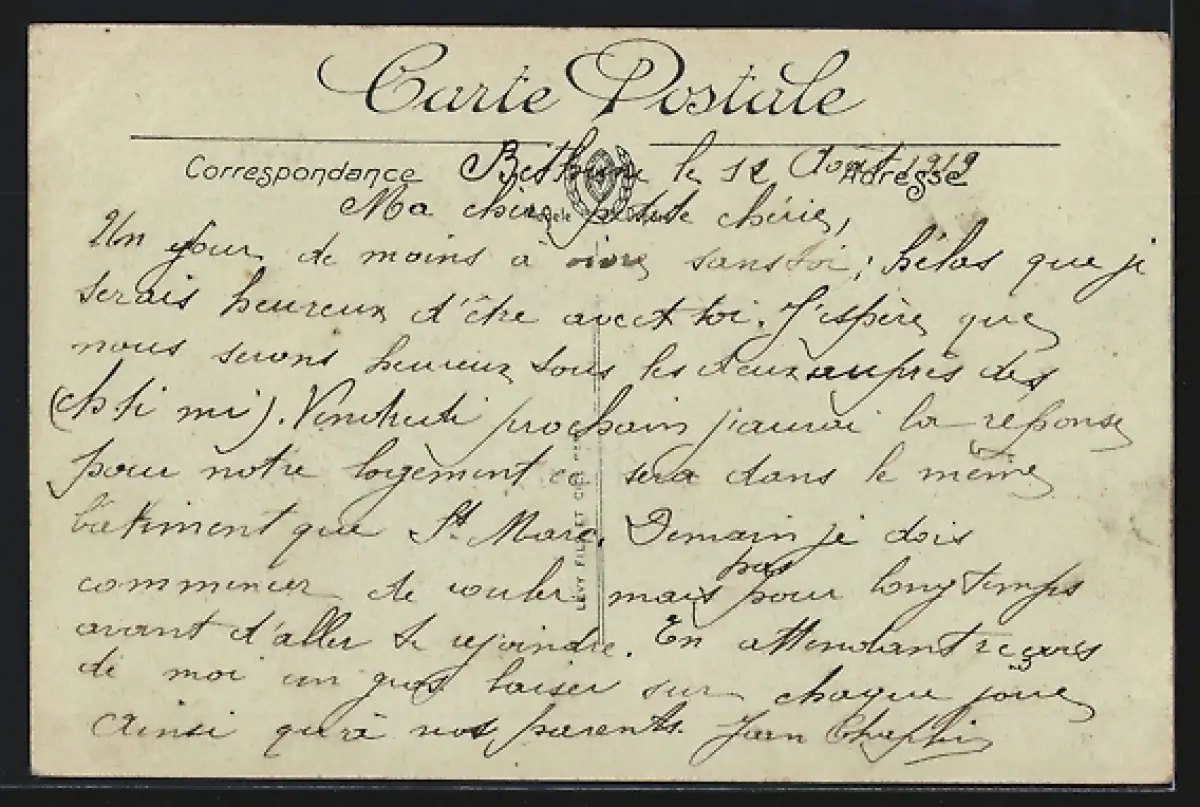 Carte Postale
Correspondance
Adresse
Béthune le 12 Août 1919
Ma chère petite chérie,
Un jour de moins à vivre sans toi ; hélas que je
serais heureux d'être avec toi. J'espère que
nous serons heureux tous les deux auprès des
(ch ti mi). Vendredi prochain j'aurai la réponse
pour notre logement ce sera dans le même
bâtiment que St Marc. Demain je dois
commencer de rouler mais pas pour longtemps
avant d'aller te rejoindre. En attendant reçois
de moi un gros baiser sur chaque joue
Ainsi qu'à nos parents. Jean
LEVY FILS ET CIE